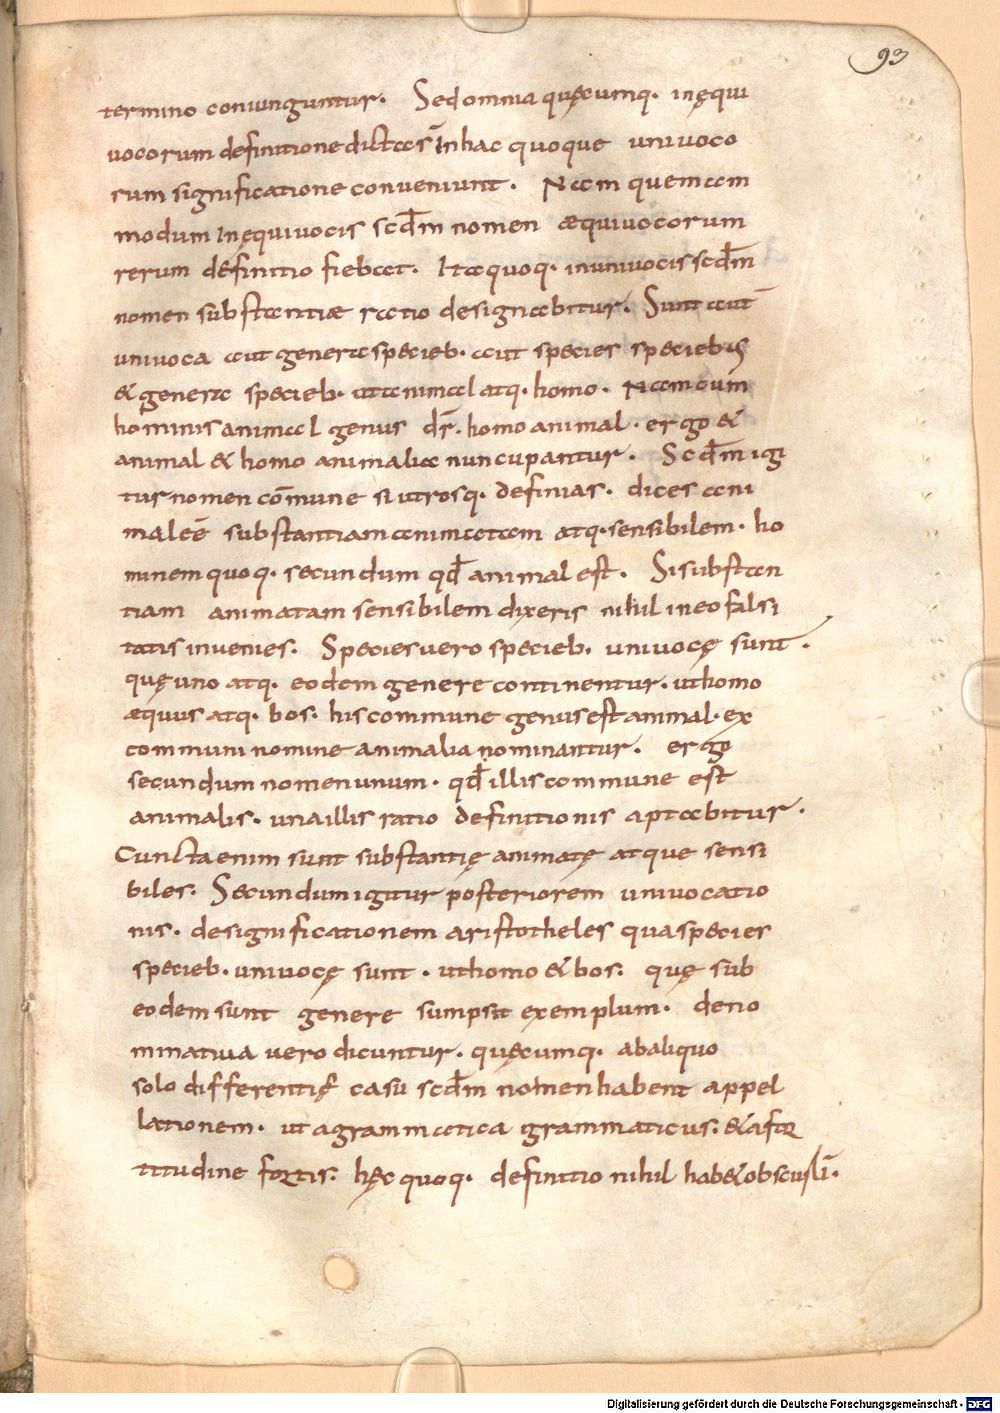 93
termino coniunguntur. Sed omnia quęcumq. inęqui
uocorum definitione dicta s̄ In hac quoque uniuoco
rum significatione conueniunt. Nam quem am
modum Inęquiuocis scđm nomen æquiuocorum
rerum definitio fiebat. Ita quoq. inuniuocis scđm
nomen substantiæ ratio designabitur. Sunt aut̄
uniuoca aut genera specieb. aut species speciebus
& genera specieb. ut animal atq. homo. Nam cum
hominis animal genus dr̄. homo animal. ergo &
animal & homo animalia nuncupantur. Scđm igi
tur nomen cōmune si utrosq. definias. dices ani
mal eē substantiam animatam atq. sensibilem. ho
minem quoq. secundum qđ animal est. Si substan
tiam animatam sensibilem dixeris nihil in eo falsi
tatis inuenies. Species uero specieb. uniuocę sunt.
quę uno atq. eodem genere continentur. ut homo
æquus atq. bos. his commune genus est animal. ex
communi nomine animalia nominantur. ergo
secundum nomen unum. qđ illis commune est
animalis. una illis ratio definitionis aptabitur.
Cuncta enim sunt substantię animatę atque sensi
biles. Secundum igitur posteriorem uniuocatio
nis. designificationem aristotheles qua species
specieb. uniuocę sunt. ut homo & bos. quę sub
eodem sunt genere sumpsit exemplum. deno
minatiua uero dicuntur. quęcumq. ab aliquo
solo differentię casu scđm nomen habent appel
lationem. ut a grammatica grammaticus. & a for
titudine fortis. hęc quoq. definitio nihil hab&obscu
Digitalisierung gefördert durch die Deutsche Forschungsgemeinschaft - DFG